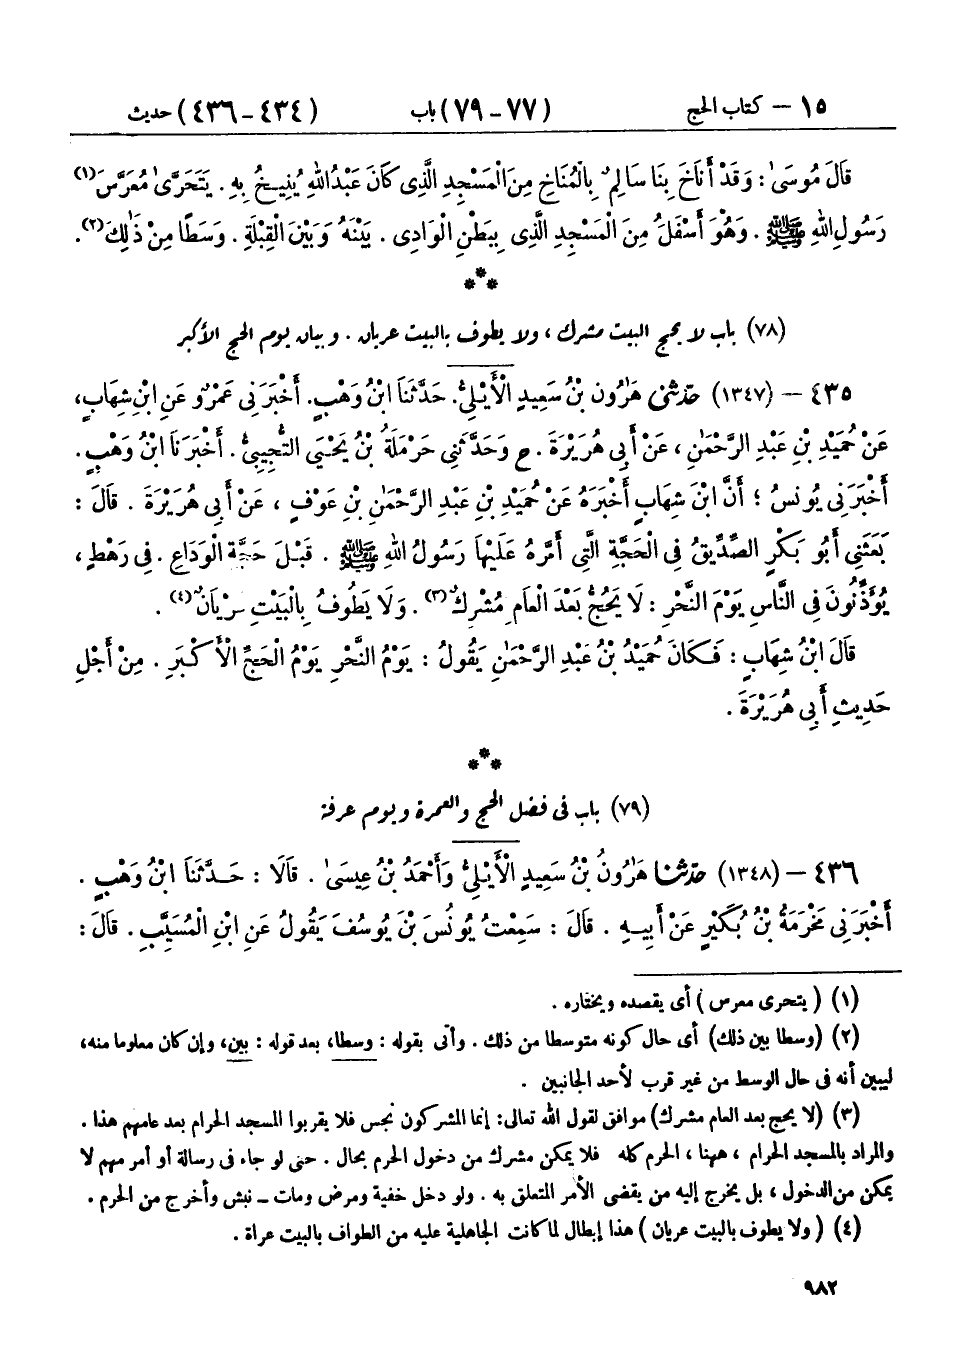 ١٥ – كتاب الحج (٧٧ – ٧٩) باب (٤٣٤ – ٤٣٦) حديث
قَالَ مُوسَىٰ : وَقَدْ أَنَاخَ بِنَا سَالِمٌ بِالْمُنَاخِ مِنَ الْمَسْجِدِ الَّذِى كَانَ عَبْدُ اللهِ يُنِيخُ بِهِ . يَتَحَرَّىٰ مُعَرَّسَ(١)
رَسُولِ اللهِ ﷺ . وَهُوَ أَسْفَلُ مِنَ الْمَسْجِدِ الَّذِى بِبَطْنِ الْوَادِى . بَيْنَهُ وَبَيْنَ الْقِبْلَةِ . وَسَطًا مِنْ ذَٰلِكَ(٢) .
***
(٧٨) باب لا يحج البيت مشرك ، ولا يطوف بالبيت عريان . وبيان يوم الحج الأكبر
٤٣٥ – (١٣٤٧) حَدَّثَنِى هَٰرُونُ بْنُ سَعِيدٍ الْأَيْلِىُّ . حَدَّثَنَا ابْنُ وَهْبٍ . أَخْبَرَنِى عَمْرٌو عَنِ ابْنِ شِهَابٍ ،
عَنْ حُمَيْدِ بْنِ عَبْدِ الرَّحْمَٰنِ ، عَنْ أَبِى هُرَيْرَةَ . ح وَحَدَّثَنِى حَرْمَلَةُ بْنُ يَحْيَى التُّجِيبِىُّ . أَخْبَرَنَا ابْنُ وَهْبٍ .
أَخْبَرَنِى يُونُسُ ؛ أَنَّ ابْنَ شِهَابٍ أَخْبَرَهُ عَنْ حُمَيْدِ بْنِ عَبْدِ الرَّحْمَٰنِ بْنِ عَوْفٍ ، عَنْ أَبِى هُرَيْرَةَ . قَالَ :
بَعَثَنِى أَبُو بَكْرٍ الصِّدِّيقُ فِى الْحَجَّةِ الَّتِى أَمَّرَهُ عَلَيْهَا رَسُولُ اللهِ ﷺ . قَبْلَ حَجَّةِ الْوَدَاعِ . فِى رَهْطٍ ،
يُؤَذِّنُونَ فِى النَّاسِ يَوْمَ النَّحْرِ : لَا يَحُجُّ بَعْدَ الْعَامِ مُشْرِكٌ(٣) . وَلَا يَطُوفُ بِالْبَيْتِ عُرْيَانٌ(٤) .
قَالَ ابْنُ شِهَابٍ : فَكَانَ حُمَيْدُ بْنُ عَبْدِ الرَّحْمَٰنِ يَقُولُ : يَوْمُ النَّحْرِ يَوْمُ الْحَجِّ الْأَكْبَرِ . مِنْ أَجْلِ
حَدِيثِ أَبِى هُرَيْرَةَ .
***
(٧٩) باب فى فضل الحج والعمرة ويوم عرفة
٤٣٦ – (١٣٤٨) حَدَّثَنَا هَٰرُونُ بْنُ سَعِيدٍ الْأَيْلِىُّ وَأَحْمَدُ بْنُ عِيسَىٰ . قَالَا : حَدَّثَنَا ابْنُ وَهْبٍ .
أَخْبَرَنِى مَخْرَمَةُ بْنُ بُكَيْرٍ عَنْ أَبِيهِ . قَالَ : سَمِعْتُ يُونُسَ بْنَ يُوسُفَ يَقُولُ عَنِ ابْنِ الْمُسَيَّبِ . قَالَ :
(١) ( يتحرى معرس ) أى يقصده ويختاره .
(٢) (وسطا بين ذلك) أى حال كونه متوسطا من ذلك . وأتى بقوله : وسطا ، بعد قوله : بين ، وإن كان معلوما منه ،
ليبين أنه فى حال الوسط من غير قرب لأحد الجانبين .
(٣) (لا يحج بعد العام مشرك) موافق لقول الله تعالى: إنما المشركون نجس فلا يقربوا المسجد الحرام بعد عامهم هذا .
والمراد بالمسجد الحرام ، ههنا ، الحرم كله فلا يمكن مشرك من دخول الحرم بحال . حتى لو جاء فى رسالة أو أمر مهم لا
يمكن من الدخول ، بل يخرج إليه من يقضى الأمر المتعلق به . ولو دخل خفية ومرض ومات – نبش وأخرج من الحرم .
(٤) ( ولا يطوف بالبيت عريان ) هذا إبطال لما كانت الجاهلية عليه من الطواف بالبيت عراة .
٩٨٢